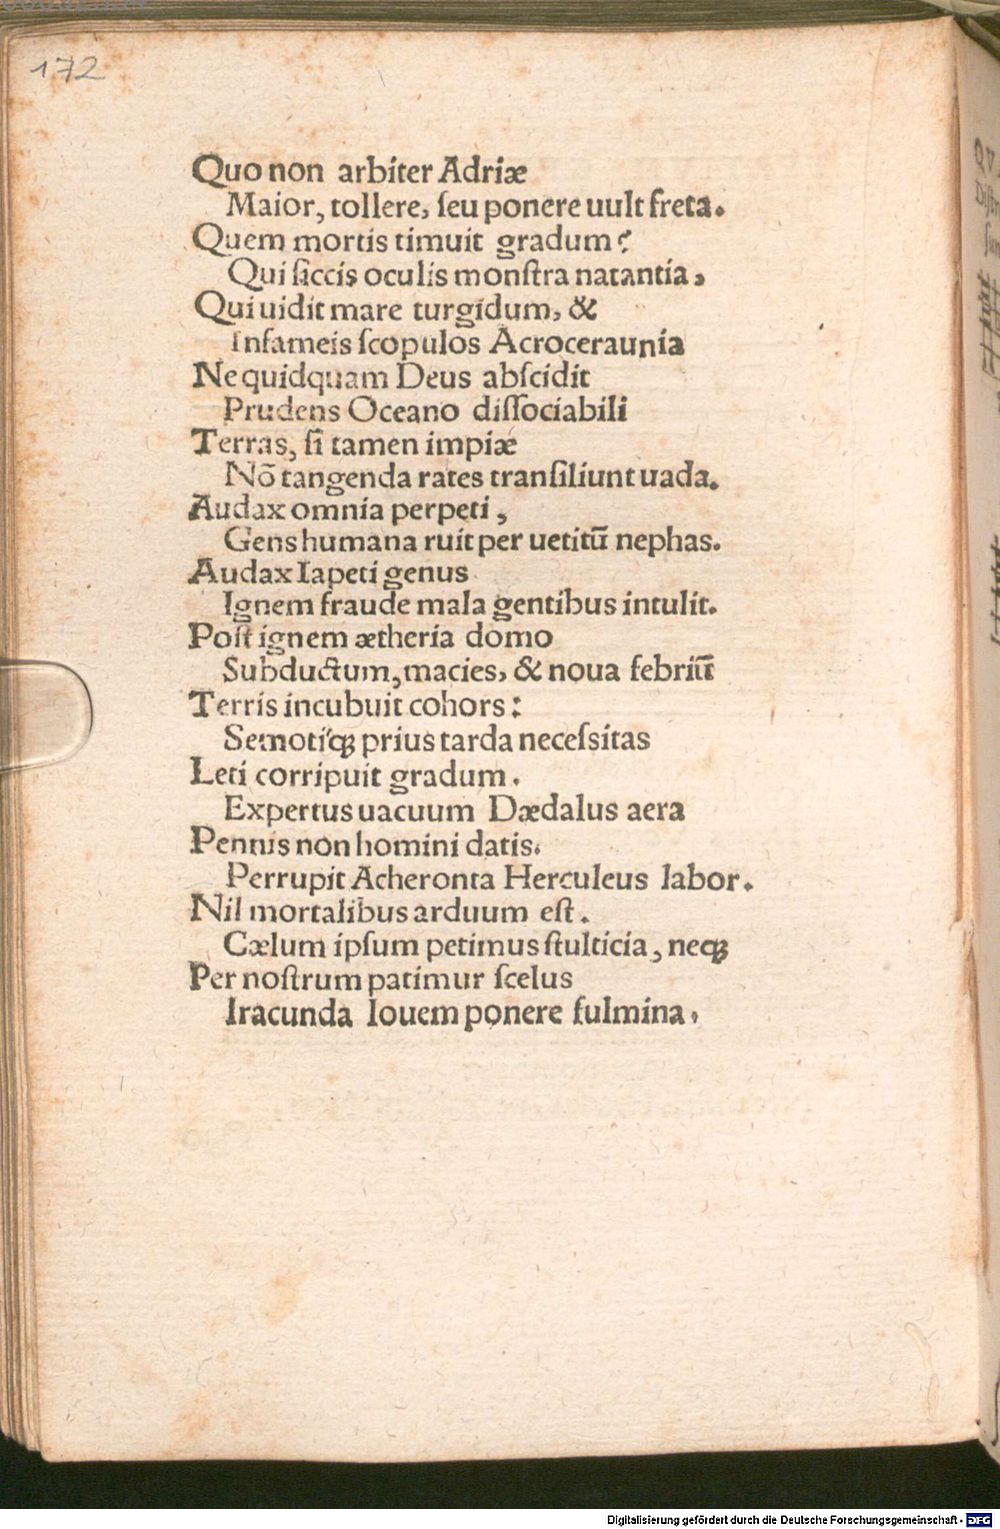 172
Quo non arbiter Adriæ
Maior, tollere, ſeu ponere uult freta.
Quem mortis timuit gradum?
Qui ſiccis oculis monſtra natantia,
Qui uidit mare turgidum, &
Infameis ſcopulos Acroceraunia
Nequidquam Deus abſcidit
Prudens Oceano diſſociabili
Terras, ſi tamen impiæ
Nō tangenda rates tranſiliunt uada.
Audax omnia perpeti,
Gens humana ruit per uetitū nephas.
Audax Iapeti genus
Ignem fraude mala gentibus intulit.
Poſt ignem ætheria domo
Subductum, macies, & noua febriū
Terris incubuit cohors:
Semotiꝗ prius tarda neceſsitas
Leti corripuit gradum.
Expertus uacuum Dædalus aera
Pennis non homini datis.
Perrupit Acheronta Herculeus labor.
Nil mortalibus arduum eſt.
Cælum ipſum petimus ſtulticia, neꝗ
Per noſtrum patimur ſcelus
Iracunda Iouem ponere fulmina.
Digitalisierung gefördert durch die Deutsche Forschungsgemeinschaft - DFG